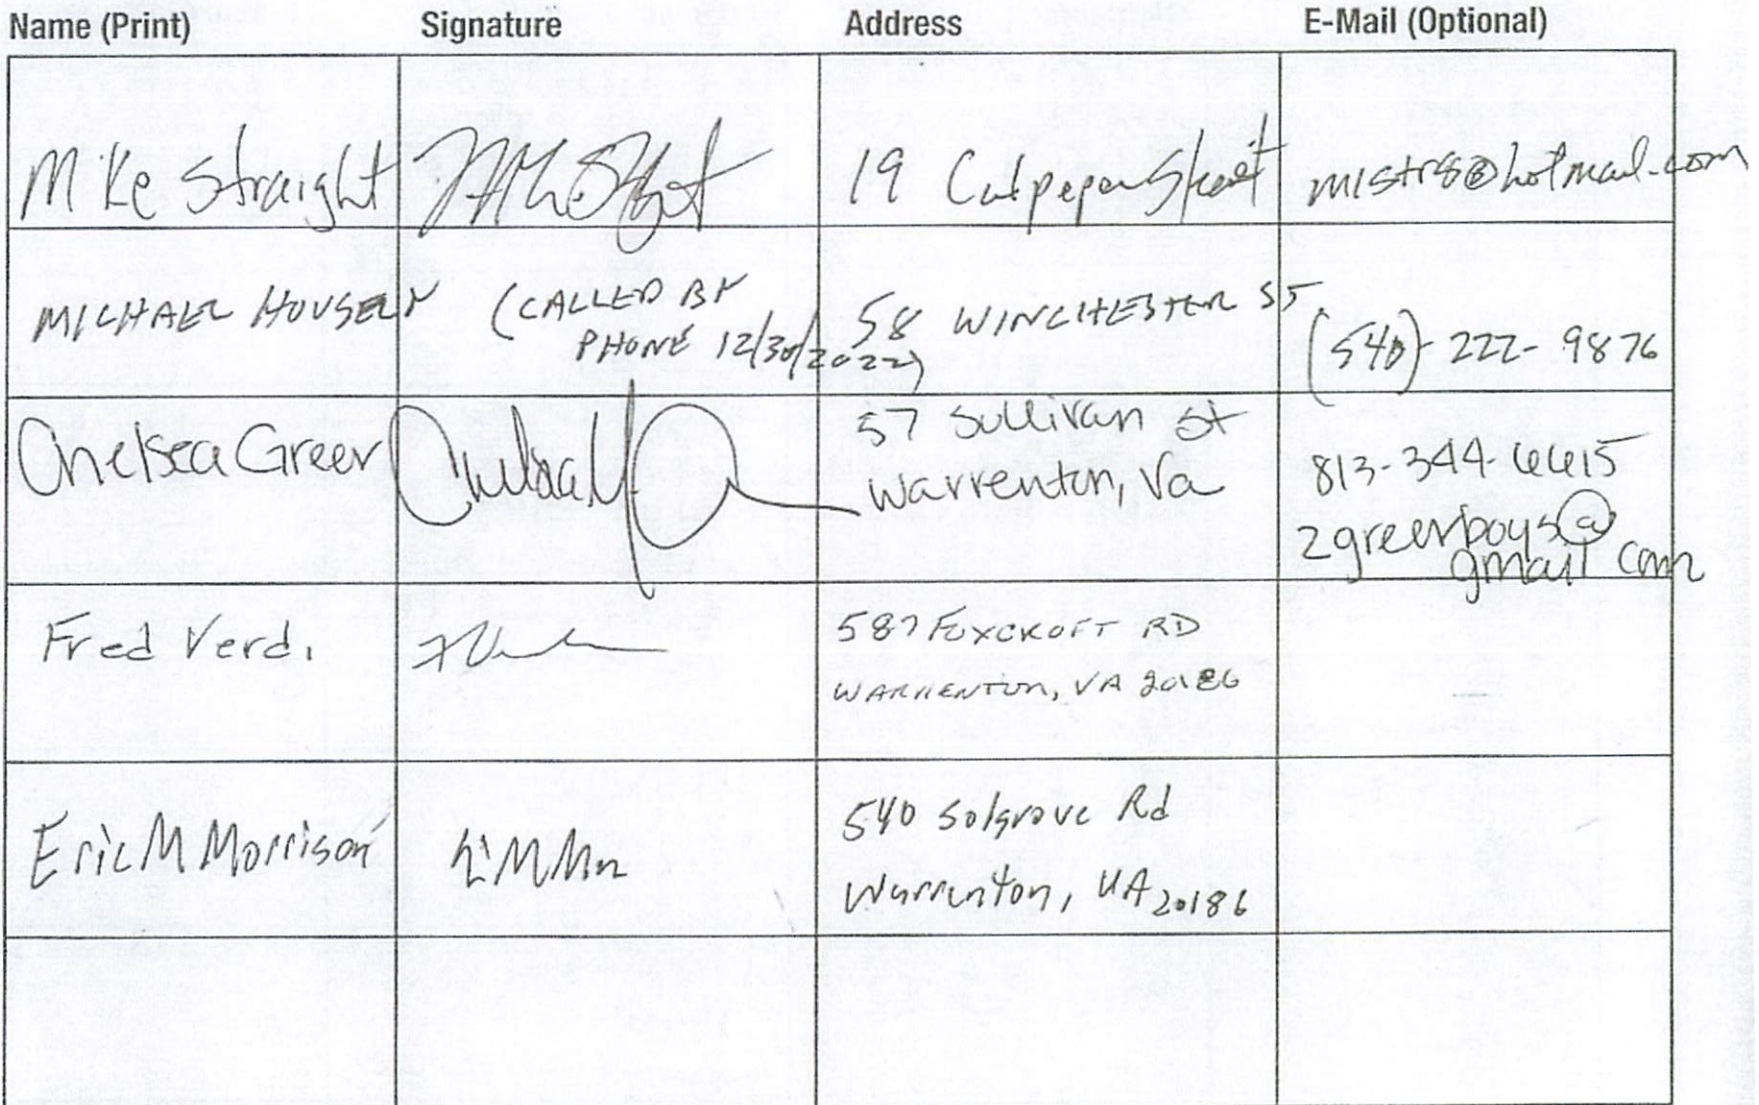 Name (Print) Signature Address E-Mail (Optional)
Mike Straight 19 Culpeper Street mistr8@hotmail.com
MICHAEL HOUSER (CALLED BY 58 WINCHESTER ST
PHONE 12/30/2022) (540)-222-9876
Chelsea Greer 57 Sullivan St 813-344-6615
Warrenton, Va 2greerboys@
gmail com
Fred Verdi 587 FOXCROFT RD
WARRENTON, VA 20186
Eric M Morrison 540 Solgrove Rd
Warrenton, VA 20186